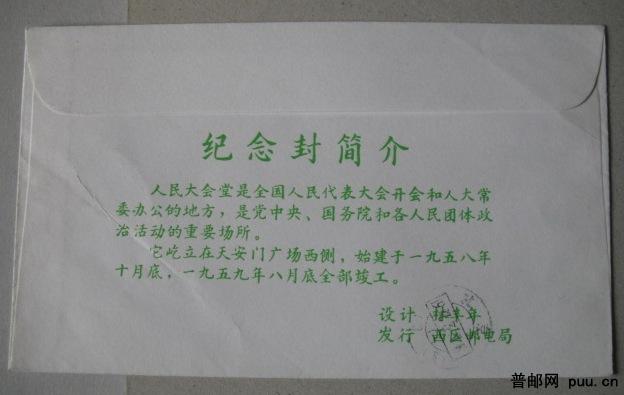 纪念封简介
人民大会堂是全国人民代表大会开会和人大常
委办公的地方，是党中央、国务院和各人民团体政
治活动的重要场所。
它屹立在天安门广场西侧，始建于一九五八年
十月底，一九五九年八月底全部竣工。
设计 丰年
发行 西区邮电局
普邮网 puu.cn